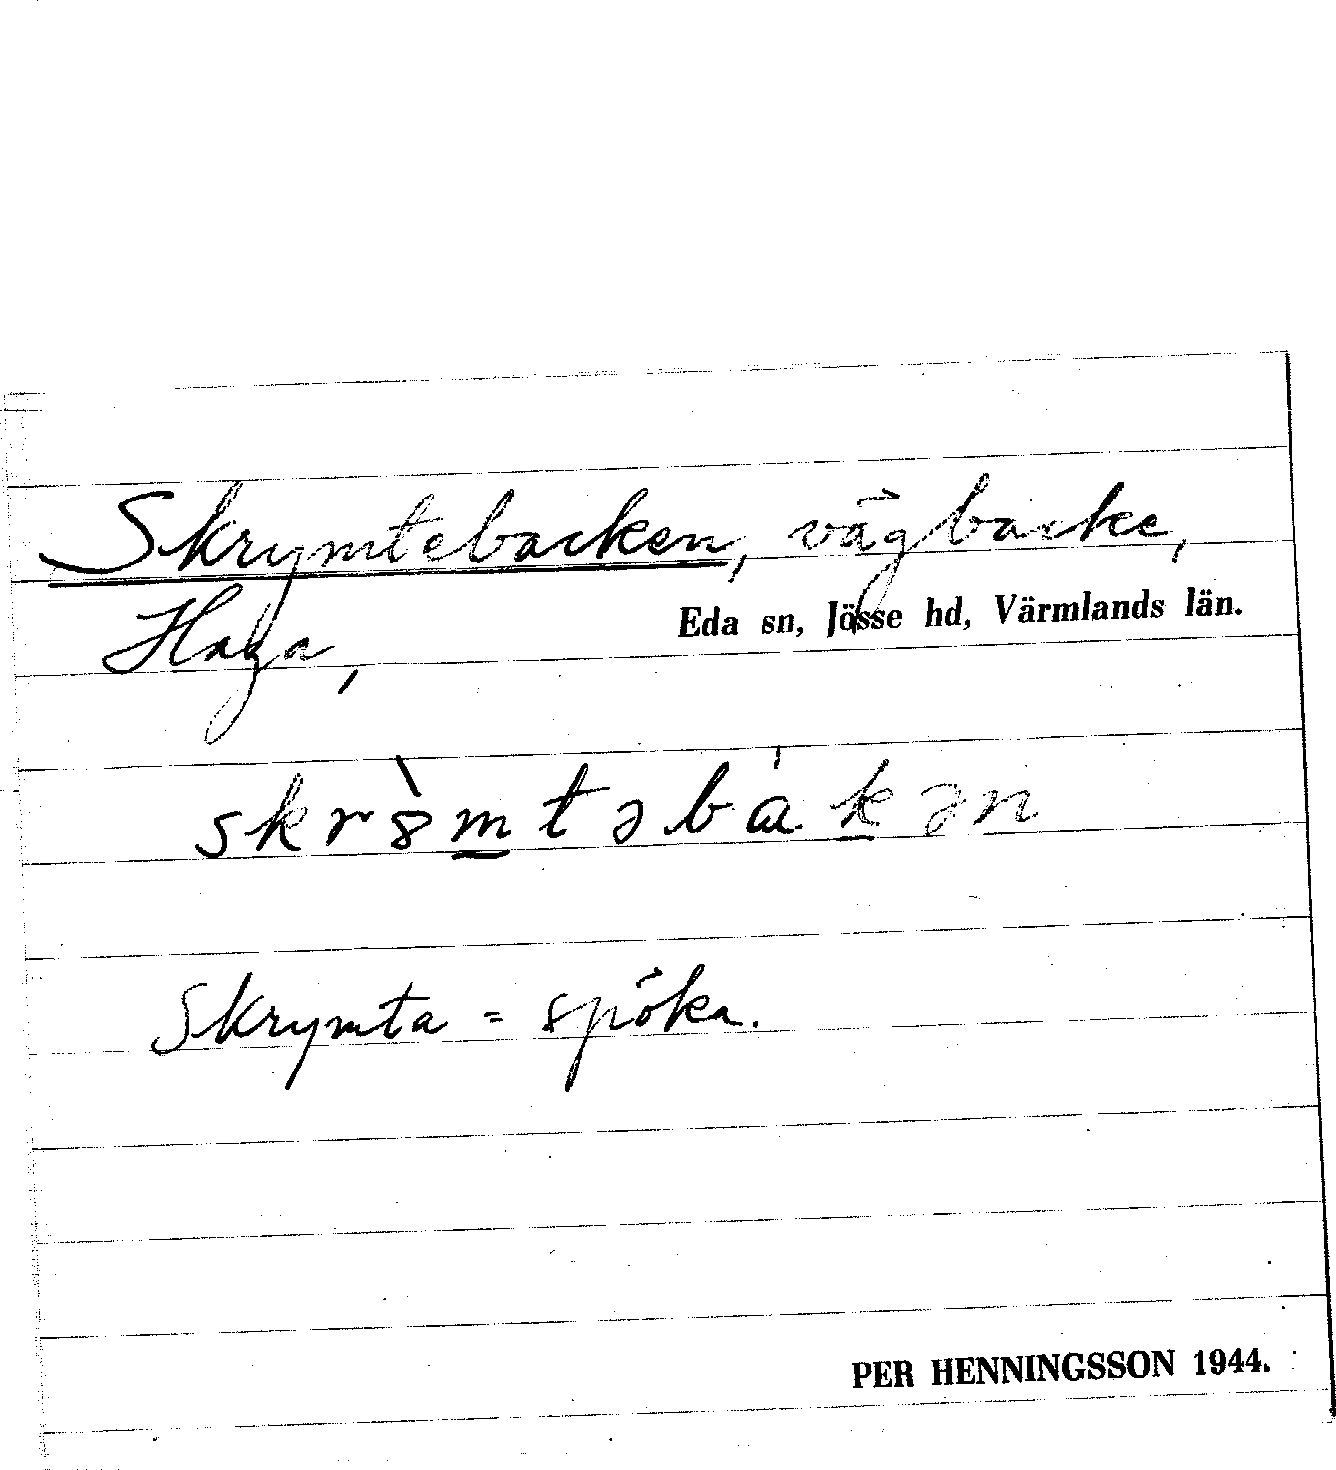 Skrymtebacken, vägbacke,
Haga,
Eda sn, Jösse hd, Värmlands län.
skr8̀m̲təbá̍k̲ən
Skrymta = spöka.
PER HENNINGSSON 1944.